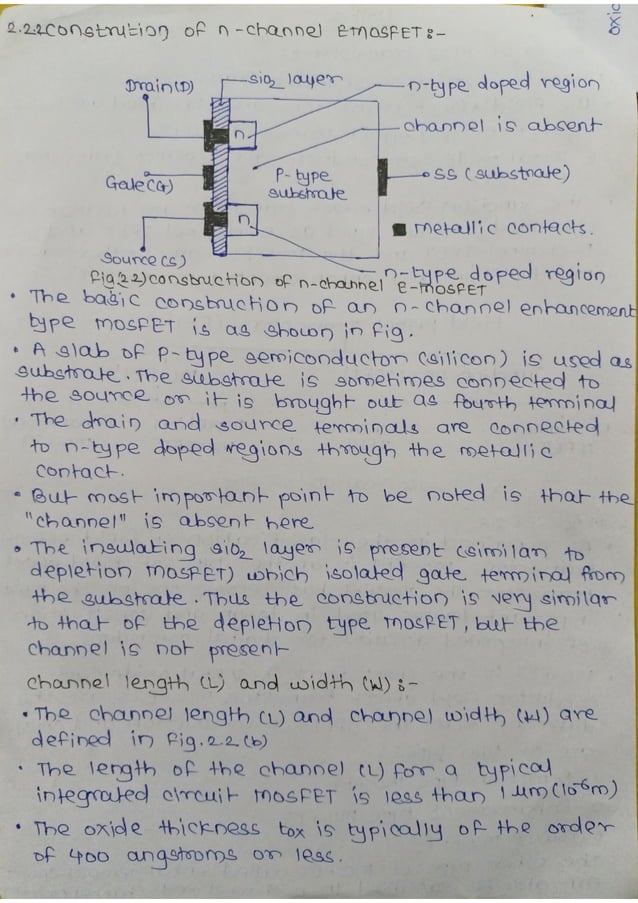 2.2.2 Constrution of n-channel EMOSFET :-
oxid
Drain(D)
sio2 layer
n-type doped region
n
channel is absent
Gate(G)
P-type
substrate
SS (substrate)
metallic contacts.
n
Source(s)
n-type doped region
Fig(2.2) construction of n-channel E-MOSFET
• The basic construction of an n-channel enhancement
type MOSFET is as shown in fig.
• A slab of P-type semiconductor (silicon) is used as
substrate. The substrate is sometimes connected to
the source or it is brought out as fourth terminal
• The drain and source terminals are connected
to n-type doped regions through the metallic
contact.
• But most important point to be noted is that the
"channel" is absent here
• The insulating sio2 layer is present (similar to
depletion MOSFET) which isolated gate terminal from
the substrate. Thus the construction is very similar
to that of the depletion type MOSFET, but the
channel is not present
channel length (L) and width (W) :-
• The channel length (L) and channel width (W) are
defined in Fig. 2.2 (b)
• The length of the channel (L) for a typical
integrated circuit MOSFET is less than 1 um (10-6m)
• The oxide thickness tox is typically of the order
of 400 angstroms or less.